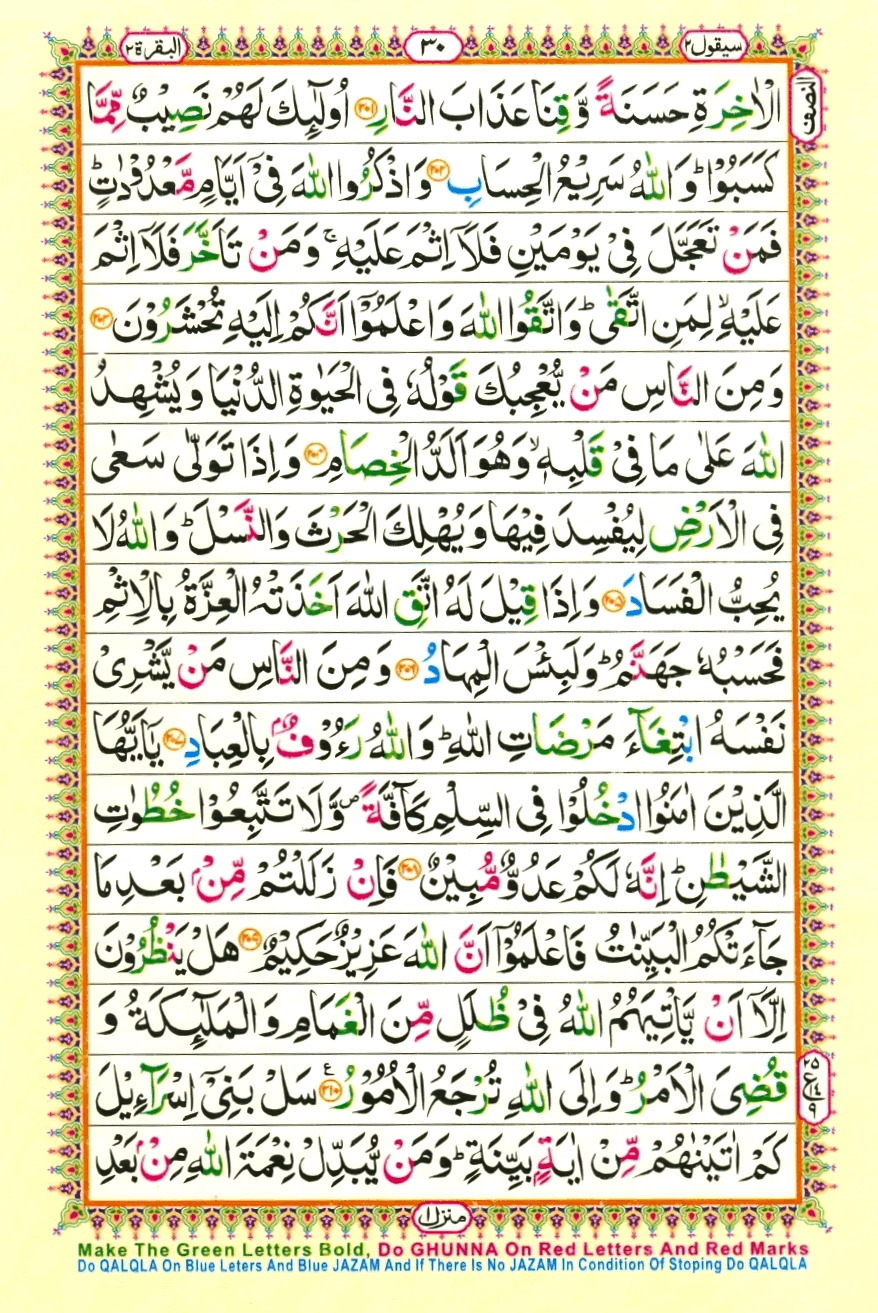 سيقول ٢
٣٠
البقرة ٢
النصف
الْاٰخِرَةِ حَسَنَةً وَّقِنَا عَذَابَ النَّارِ ﴿٢٠١﴾ اُولٰٓئِكَ لَهُمْ نَصِيْبٌ مِّمَّا
كَسَبُوْا ؕ وَاللّٰهُ سَرِيْعُ الْحِسَابِ ﴿٢٠٢﴾ وَاذْكُرُوا اللّٰهَ فِيْۤ اَيَّامٍ مَّعْدُوْدٰتٍ ؕ
فَمَنْ تَعَجَّلَ فِيْ يَوْمَيْنِ فَلَاۤ اِثْمَ عَلَيْهِ ۚ وَمَنْ تَاَخَّرَ فَلَاۤ اِثْمَ
عَلَيْهِ ۙ لِمَنِ اتَّقٰى ؕ وَاتَّقُوا اللّٰهَ وَاعْلَمُوْۤا اَنَّكُمْ اِلَيْهِ تُحْشَرُوْنَ ﴿٢٠٣﴾
وَمِنَ النَّاسِ مَنْ يُّعْجِبُكَ قَوْلُهٗ فِى الْحَيٰوةِ الدُّنْيَا وَيُشْهِدُ
اللّٰهَ عَلٰى مَا فِيْ قَلْبِهٖ ۙ وَهُوَ اَلَدُّ الْخِصَامِ ﴿٢٠٤﴾ وَاِذَا تَوَلّٰى سَعٰى
فِى الْاَرْضِ لِيُفْسِدَ فِيْهَا وَيُهْلِكَ الْحَرْثَ وَالنَّسْلَ ؕ وَاللّٰهُ لَا
يُحِبُّ الْفَسَادَ ﴿٢٠٥﴾ وَاِذَا قِيْلَ لَهُ اتَّقِ اللّٰهَ اَخَذَتْهُ الْعِزَّةُ بِالْاِثْمِ
فَحَسْبُهٗ جَهَنَّمُ ؕ وَلَبِئْسَ الْمِهَادُ ﴿٢٠٦﴾ وَمِنَ النَّاسِ مَنْ يَّشْرِىْ
نَفْسَهُ ابْتِغَآءَ مَرْضَاتِ اللّٰهِ ؕ وَاللّٰهُ رَءُوْفٌۢ بِالْعِبَادِ ﴿٢٠٧﴾ يٰۤاَيُّهَا
الَّذِيْنَ اٰمَنُوا ادْخُلُوْا فِى السِّلْمِ كَآفَّةً ۪ وَّلَا تَتَّبِعُوْا خُطُوٰتِ
الشَّيْطٰنِ ؕ اِنَّهٗ لَكُمْ عَدُوٌّ مُّبِيْنٌ ﴿٢٠٨﴾ فَاِنْ زَلَلْتُمْ مِّنْۢ بَعْدِ مَا
جَآءَتْكُمُ الْبَيِّنٰتُ فَاعْلَمُوْۤا اَنَّ اللّٰهَ عَزِيْزٌ حَكِيْمٌ ﴿٢٠٩﴾ هَلْ يَنْظُرُوْنَ
اِلَّاۤ اَنْ يَّاْتِيَهُمُ اللّٰهُ فِيْ ظُلَلٍ مِّنَ الْغَمَامِ وَالْمَلٰٓئِكَةُ وَ
قُضِىَ الْاَمْرُ ؕ وَاِلَى اللّٰهِ تُرْجَعُ الْاُمُوْرُ ﴿٢١٠﴾ ع سَلْ بَنِيْۤ اِسْرَآءِيْلَ
٢٥
ع ١٤
٩
كَمْ اٰتَيْنٰهُمْ مِّنْ اٰيَةٍۭ بَيِّنَةٍ ؕ وَمَنْ يُّبَدِّلْ نِعْمَةَ اللّٰهِ مِنْۢ بَعْدِ
منزل ١
Make The Green Letters Bold, Do GHUNNA On Red Letters And Red Marks
Do QALQLA On Blue Leters And Blue JAZAM And If There Is No JAZAM In Condition Of Stoping Do QALQLA